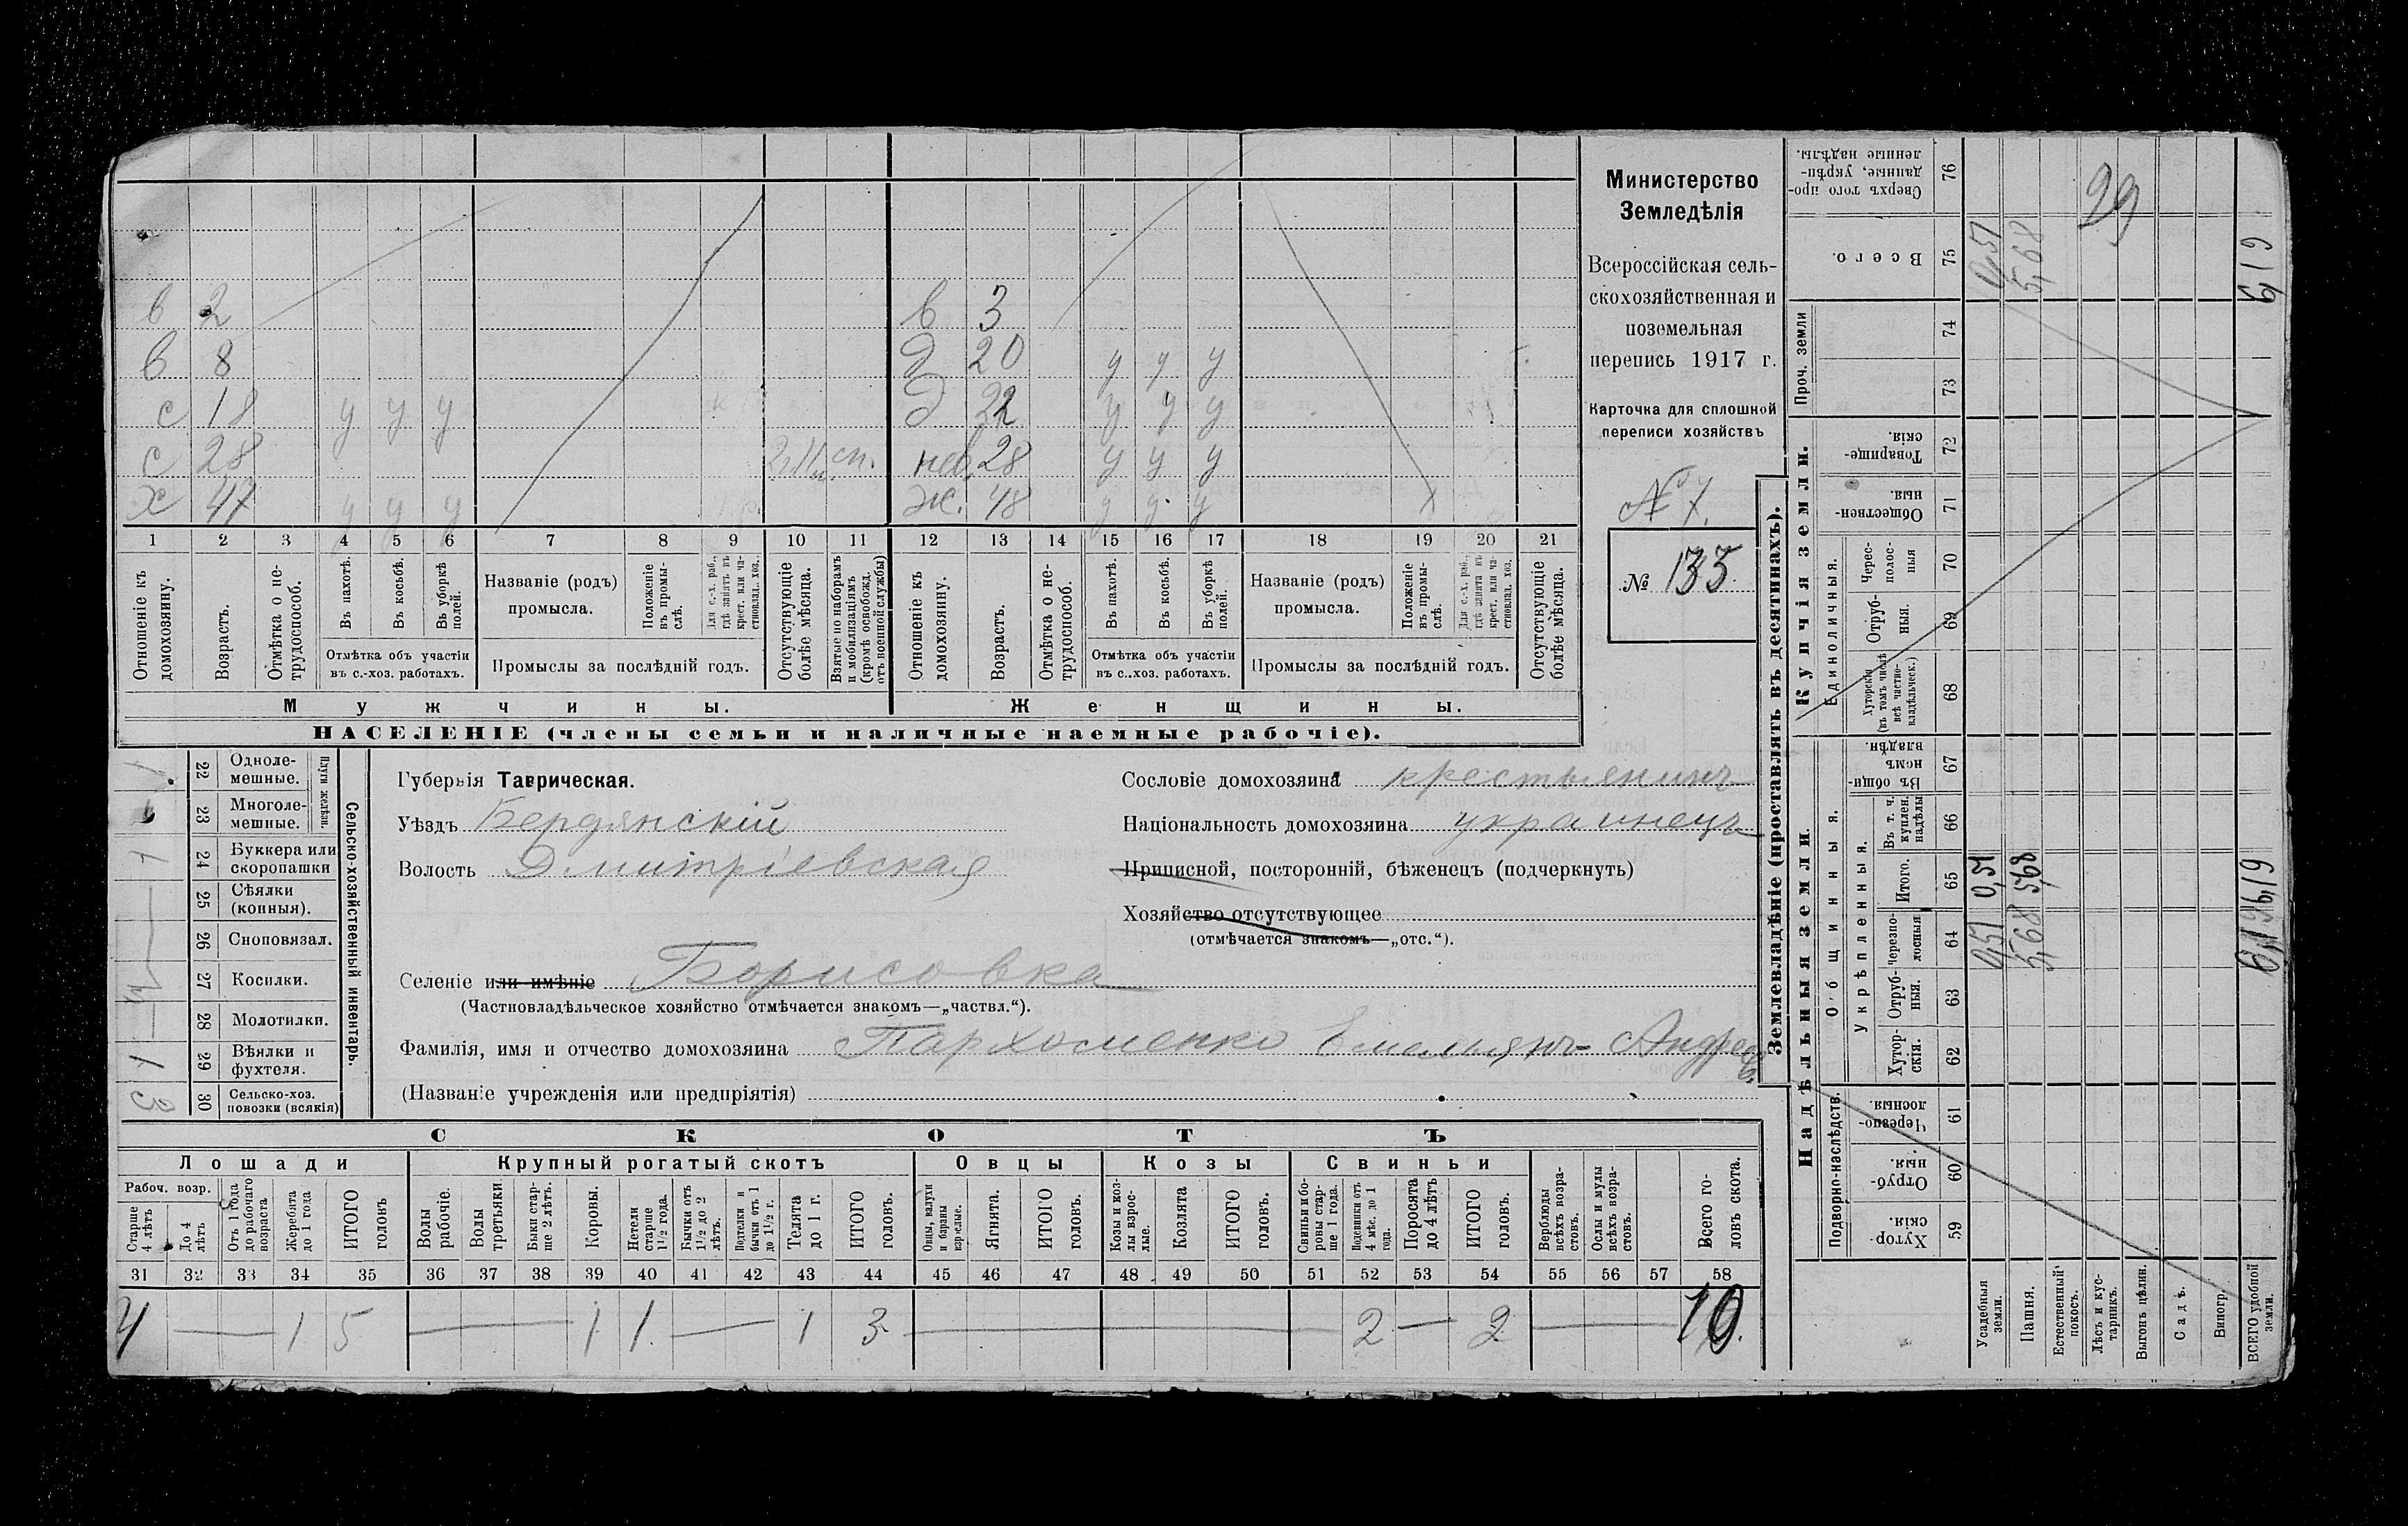 в 2 в 3
в 8 д 20 у у у
с 18 у у у д 22 у у у
с 28 сп. нев. 28 у у у
х 47 у у у ж. 48 у у у
1 2 3 4 5 6 7 8 9 10 11 12 13 14 15 16 17 18 19 20 21
Отношеніе къ домохозяину.
Возрастъ.
Отмѣтка о не-трудоспособ.
Въ пахотѣ.
Въ косьбѣ.
Въ уборкѣ полей.
Отмѣтка объ участіи
въ с.-хоз. работахъ.
Названіе (родъ)
промысла.
Положеніе въ промы-слѣ.
Для с.-х. раб., гдѣ занятъ въ крест. или ча-стновлад. хоз.
Промыслы за послѣдній годъ.
Отсутствующіе болѣе мѣсяца.
Взятые по наборамъ и мобилизаціямъ (кромѣ освобожд. отъ военной службы)
Отношеніе къ домохозяину.
Возрастъ.
Отмѣтка о не-трудоспособ.
Въ пахотѣ.
Въ косьбѣ.
Въ уборкѣ полей.
Отмѣтка объ участіи
въ с.-хоз. работахъ.
Названіе (родъ)
промысла.
Положеніе въ промы-слѣ.
Для с.-х. раб., гдѣ занята въ крест. или ча-стновлад. хоз.
Промыслы за послѣдній годъ.
Отсутствующіе болѣе мѣсяца.
Мужчины. Женщины.
НАСЕЛЕНІЕ (члены семьи и наличные наемные рабочіе).
Министерство
Земледѣлія
Всероссійская сель-
скохозяйственная и
поземельная
перепись 1917 г.
Карточка для сплошной
переписи хозяйствъ
№ 7.
№ 135
Сельско-хозяйственный инвентарь.
Плуги желѣзн.
22 Одноле-мешные. 1
23 Многоле-мешные.
24 Буккера или скоропашки 1
25 Сѣялки (конныя).
26 Сноповязал.
27 Косилки.
28 Молотилки.
29 Вѣялки и фухтеля. 1
30 Сельско-хоз. повозки (всякія)
Губернія Таврическая.
Уѣздъ Бердянскій
Волость Дмитріевская
Сословіе домохозяина крестьянинъ
Національность домохозяина украинецъ
Приписной, посторонній, бѣженецъ (подчеркнуть)
Хозяйство отсутствующее
(отмѣчается знакомъ—„отс.“).
Селеніе или имѣніе Борисовка
(Частновладѣльческое хозяйство отмѣчается знакомъ—„частвл.“).
Фамилія, имя и отчество домохозяина Пархоменко Емельянъ Андреев.
(Названіе учрежденія или предпріятія)
СКОТЪ
Лошади Крупный рогатый скотъ Овцы Козы Свиньи
Рабоч. возр.
Старше 4 лѣтъ
До 4 лѣтъ
Отъ 1 года до рабочаго возраста
Жеребята до 1 года
ИТОГО головъ
Волы рабочіе.
Волы третьяки.
Быки стар-ше 2 лѣтъ.
Коровы.
Нетели старше 1½ года.
Бычки отъ 1½ до 2 лѣтъ.
Подтелки и бычки отъ 1 до 1½ г.
Телята до 1 г.
ИТОГО головъ.
Овцы, валухи и бараны взрослые.
Ягнята.
ИТОГО головъ.
Козы и коз-лы взрос-лые.
Козлята
ИТОГО головъ.
Свиньи и бо-ровы стар-ше 1 года.
Подсвинки отъ 4 мѣс. до 1 года.
Поросята до 4 лѣтъ
ИТОГО головъ.
Верблюды всѣхъ возра-стовъ.
Ослы и мулы всѣхъ возра-стовъ.
Всего го-ловъ скота.
31 32 33 34 35 36 37 38 39 40 41 42 43 44 45 46 47 48 49 50 51 52 53 54 55 56 57 58
4 — 1 5 — 1 1 — 1 3 — 2 — 2 — 10.
Землевладѣніе (проставлять въ десятинахъ).
Надѣльныя земли. Купчія земли.
Подворно-наслѣдств.
Общинныя.
Укрѣпленныя.
Единоличныя.
Проч. земли
59 Хутор-скія.
60 Отруб-ныя.
61 Черезпо-лосныя.
62 Хутор-скія.
63 Отруб-ныя.
64 Черезпо-лосныя
65 Итого.
66 Въ т. ч. куплен. надѣлы
67 Въ общи-нномъ владѣн.
68 Хуторскія (въ томъ числѣ всѣ частно-владѣльческ.)
69 Отруб-ныя.
70 Черес-полос-ныя
71 Обществен-ныя.
72 Товарище-скія.
73
74
75 Всего.
76 Сверхъ того про-данные, укрѣп-ленные надѣлы.
Усадебныя земли. 0,51 0,51 0,51
Пашня. 5,68 5,68 5,68
Естественный покосъ.
Лѣсъ и кус-тарникъ.
Выгонъ цѣлин.
Садъ.
Виногр.
ВСЕГО удобной земли. 6,19 6,19 6,19
29